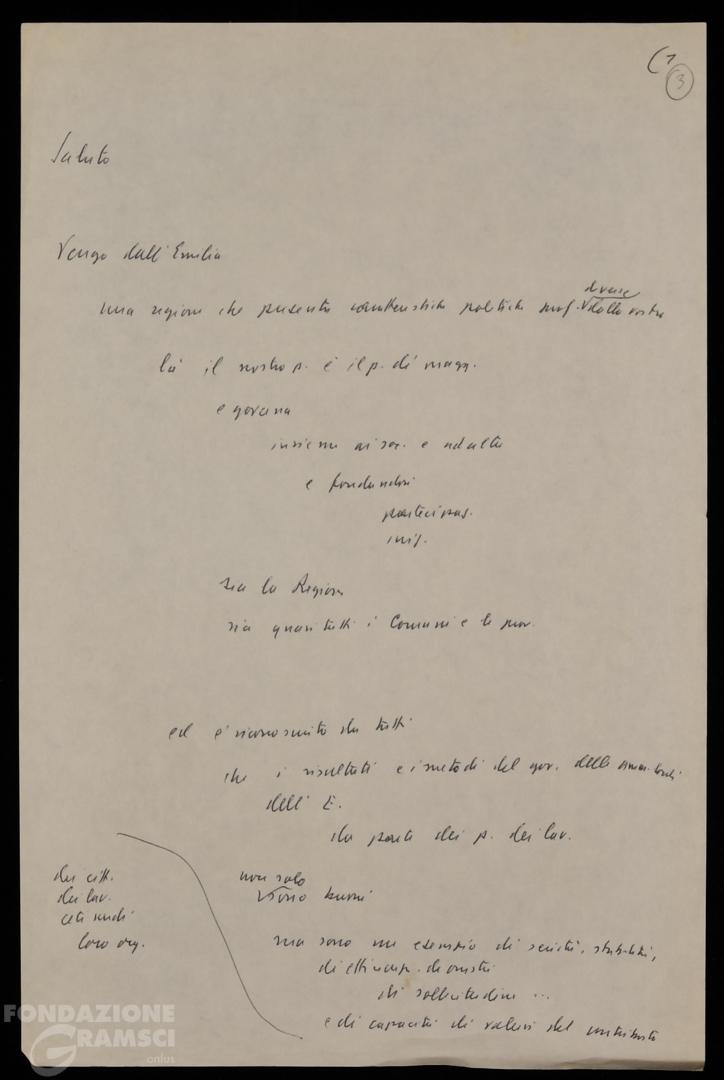 (1
3
Saluto
Vengo dall'Emilia
una regione che presenta caratteristiche politiche prof. diverse dalla vostra
là il nostro p. è il p. di magg.
e governa
insieme ai soc. e ad altri
e fondandosi
partecipaz.
unit.
sia la Regione
sia quasi tutti i Comuni e le prov.
ed è riconosciuto da tutti
che i risultati e i metodi del gov. delle amm. locali
dell'E.
da parte dei p. dei lav.
non solo
sono buoni
ma sono un esempio di serietà, stabilità,
di efficienza, di onestà
di sollecitudine ...
e di capacità di valersi del contributo
dei citt.
dei lav.
ceti medi
loro org.
FONDAZIONE
GRAMSCI
onlus